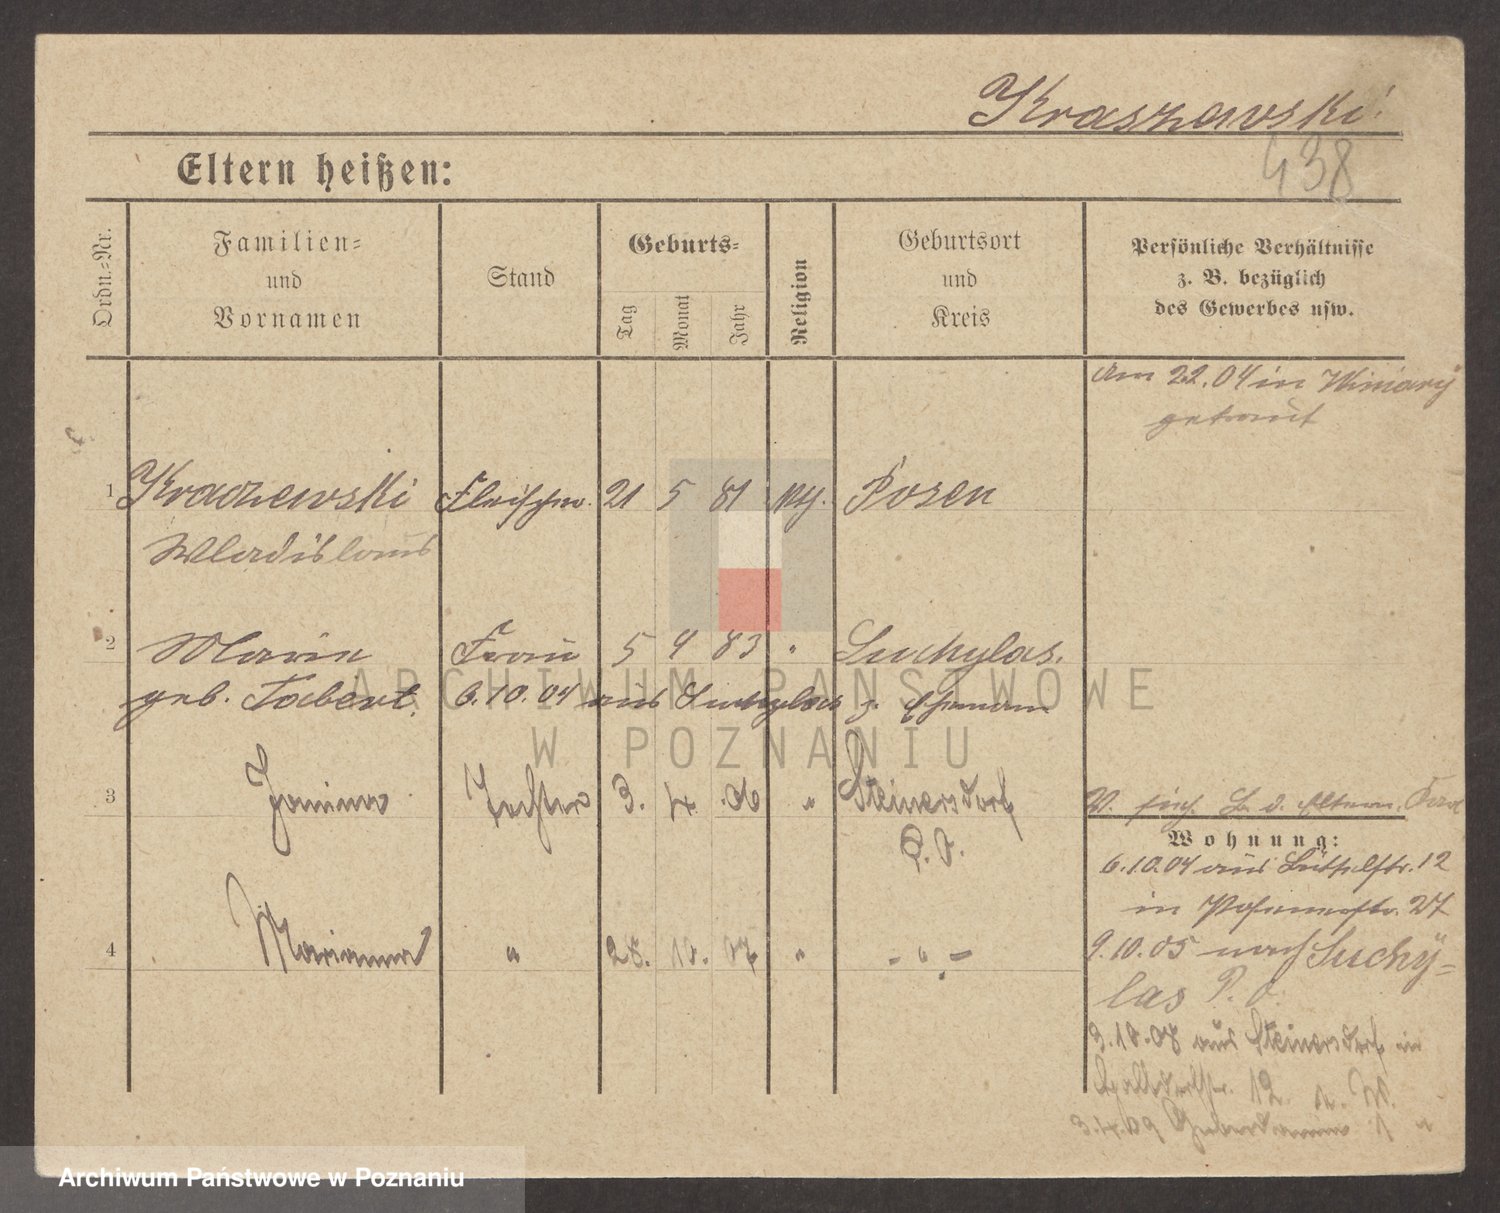 Kraszewski
438
Eltern heißen:
Ordn.-Nr.
Familien-
und
Vornamen
Stand
Geburts-
Tag
Monat
Jahr
Religion
Geburtsort
und
Kreis
Persönliche Verhältnisse
z. B. bezüglich
des Gewerbes usw.
Am 22.04 in Winiary
getraut
1 Kraszewski Fleischer. 21 5 81 Posen
Wladislaus
2 Marie Frau 5 9 83 " Suchylas.
geb. Tabert. 6.10.04 aus Suchylas z. Ehemann
ARCHIWUM PAŃSTWOWE
W POZNANIU
3 Janina Tochter 3. 4. 06 " Steinersdorf
P. O.
d. Eltern.
Wohnung:
6.10.04 aus Büttelstr. 12
in 27
4 Marianna " 28. 10. 07 " - " -
9.10.05 nach Suchy-
las P. O.
3.10.08 aus Steinersdorf in
12
3.4.09 1
Archiwum Państwowe w Poznaniu